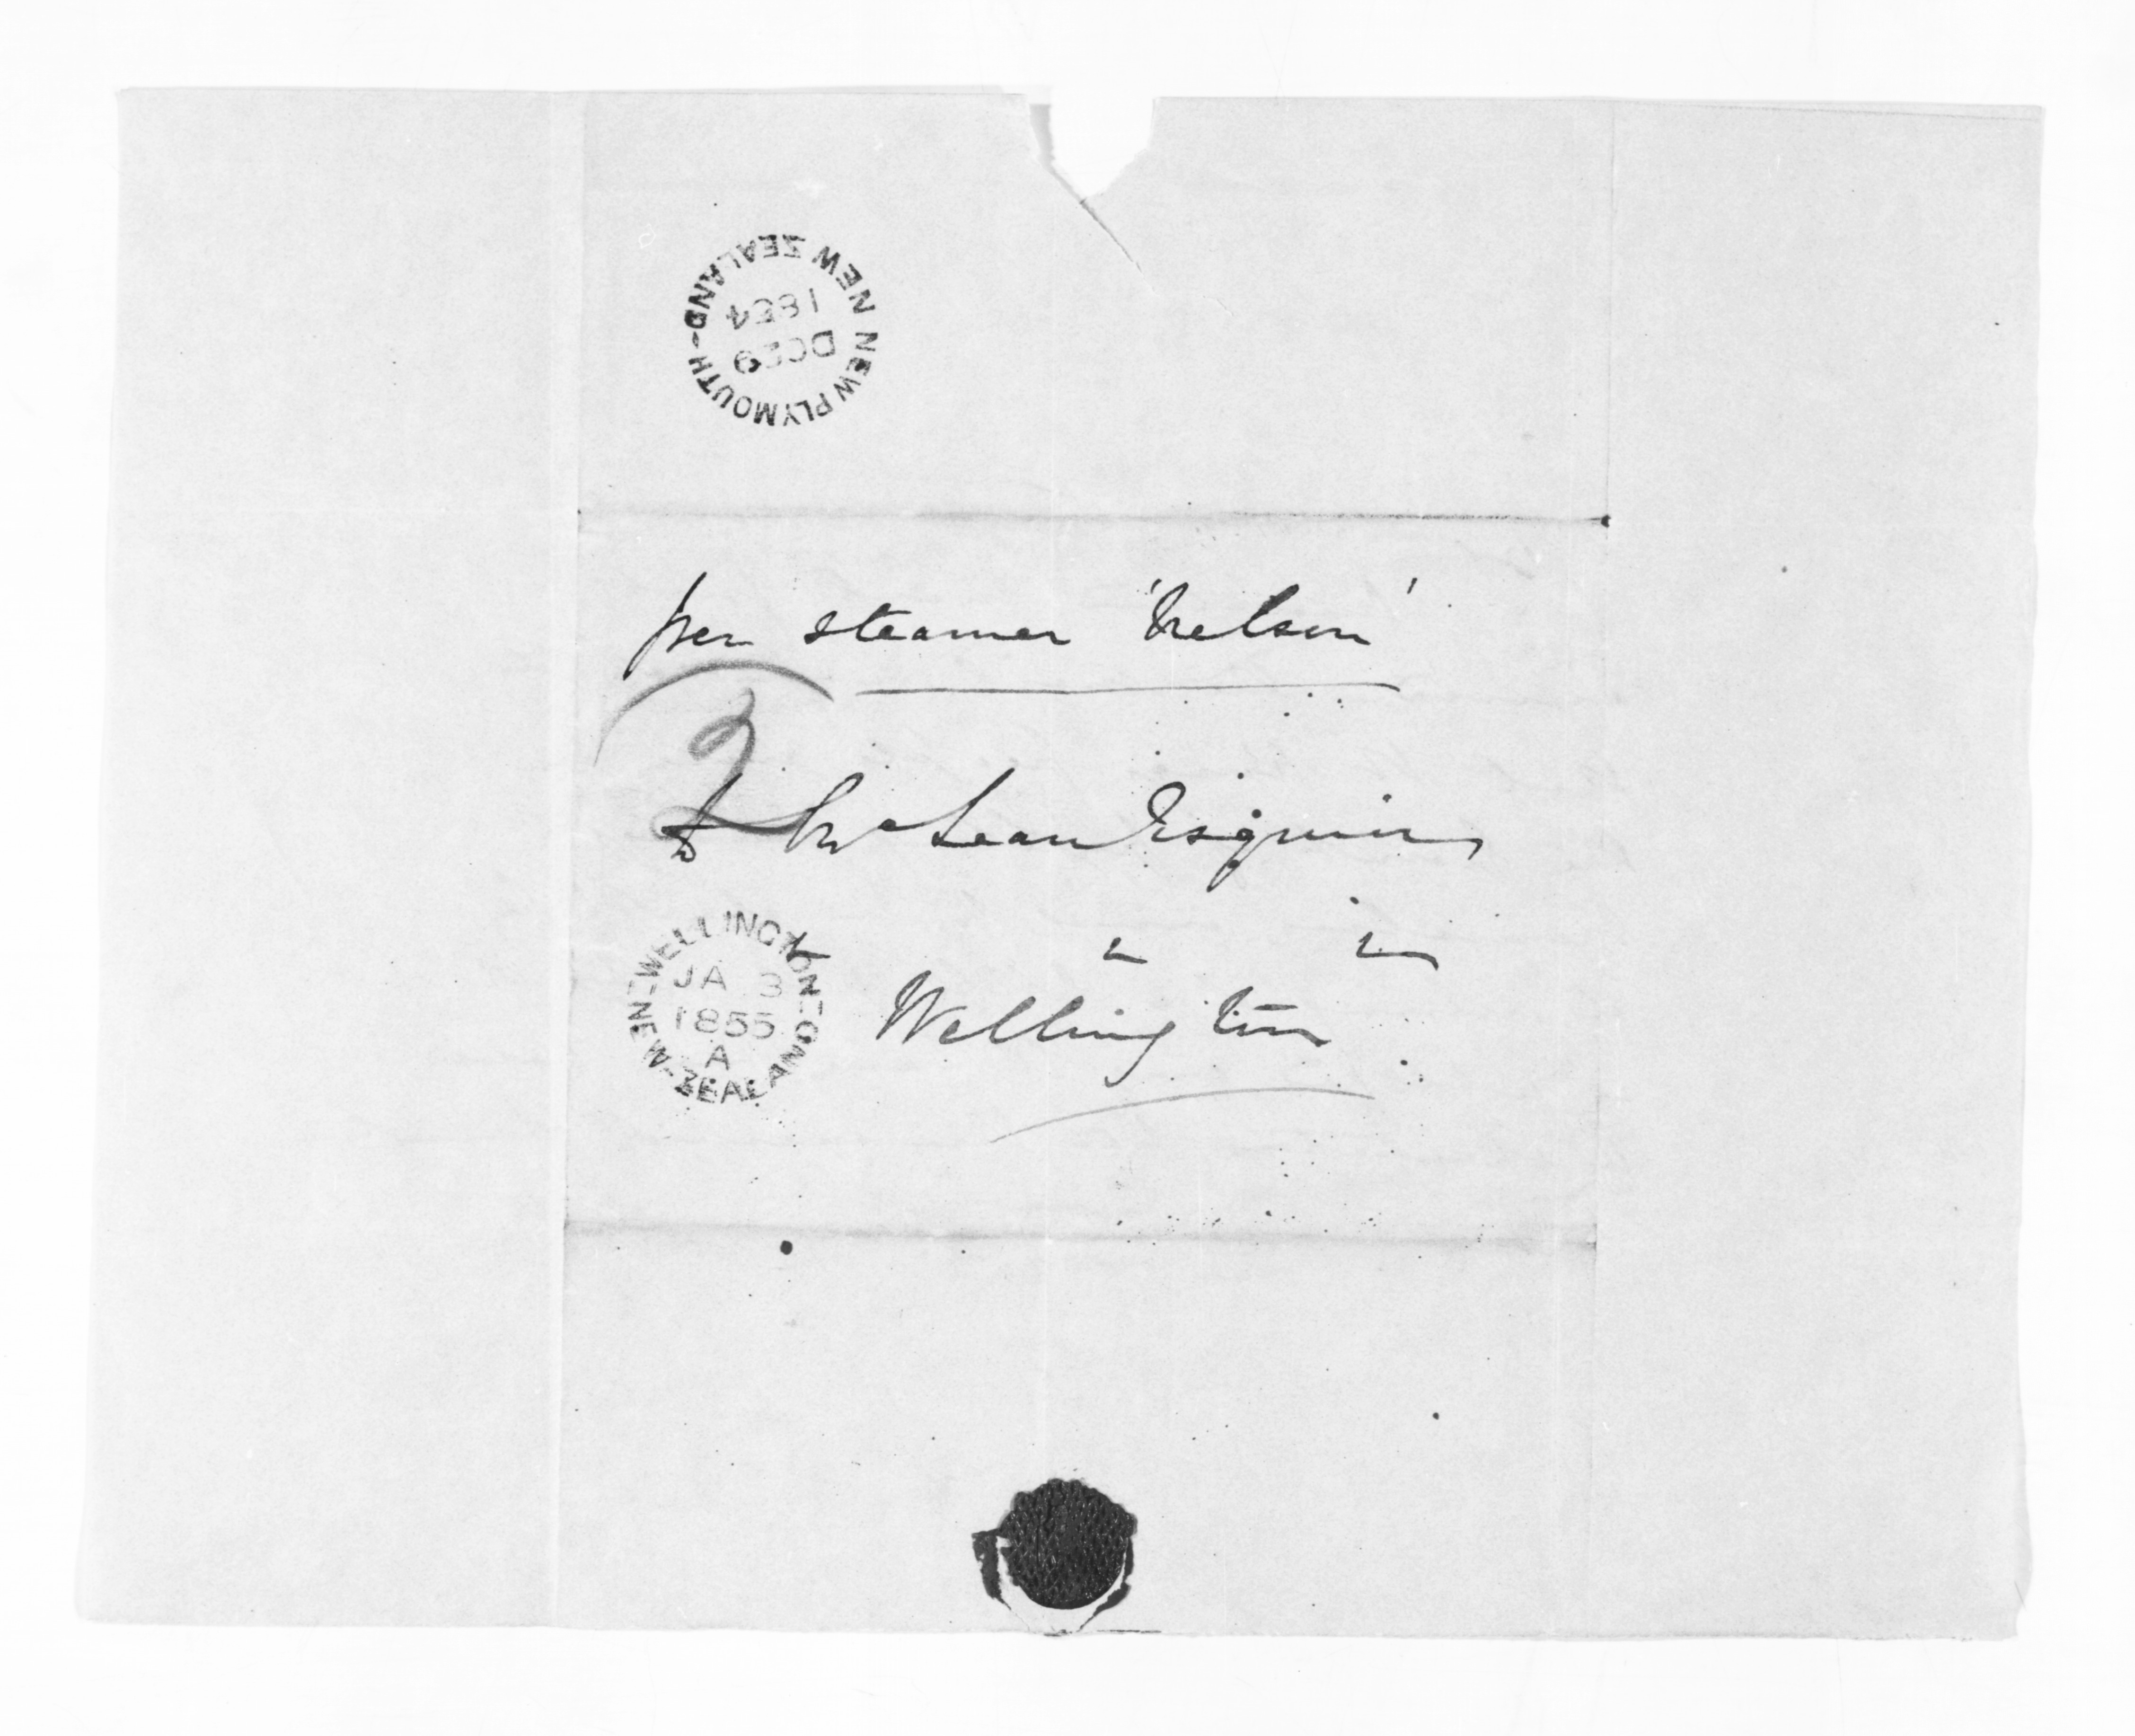 NEW PLYMOUTH - NEW ZEALAND
1854
per steamer 'Nelson'
2
McLean Esquire
WELLINGTON - NEW-ZEALAND
JA 3
1855
A
Wellington